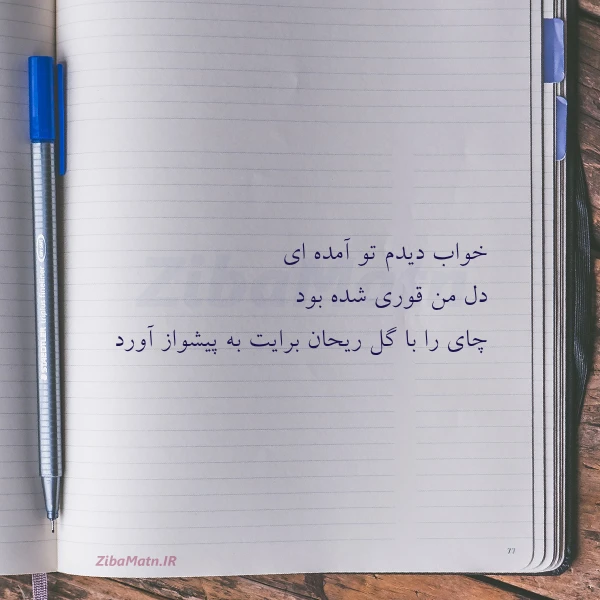 خواب دیدم تو آمده ای
دل من قوری شده بود
چای را با گل ریحان برایت به پیشواز آورد
ZibaMatn.IR